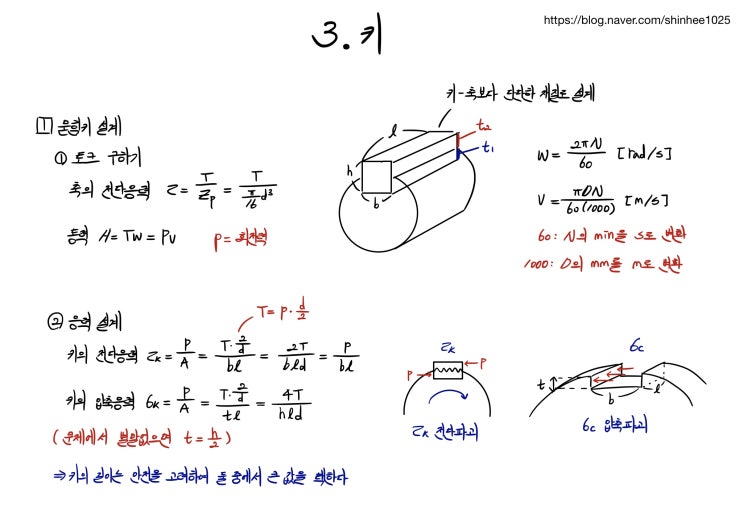 https://blog.naver.com/shinhee1025
3. 키
키-축보다 단단한 재질로 설계
1 묻힘키 설계
① 토크 구하기
축의 전단응력 τ = T/Zp = T/(π/16 d³)
동력 H = Tω = Pv
P = 회전력
l
h
b
t₂
t₁
ω = 2πN/60 [rad/s]
V = πDN/60(1000) [m/s]
60 : N의 min을 s로 변화
1000 : D의 mm를 m로 변화
② 응력 설계
T = P · d/2
키의 전단응력 τk = P/A = (T · 2/d)/bl = 2T/bld = P/bl
키의 압축응력 σk = P/A = (T · 2/d)/tl = 4T/hld
(문제에서 별말없으면 t = h/2)
⇒ 키의 길이는 안전을 고려하여 둘 중에서 큰 값을 택하다
τk
P
P
τk 전단파괴
σc
t
b
l
σc 압축파괴